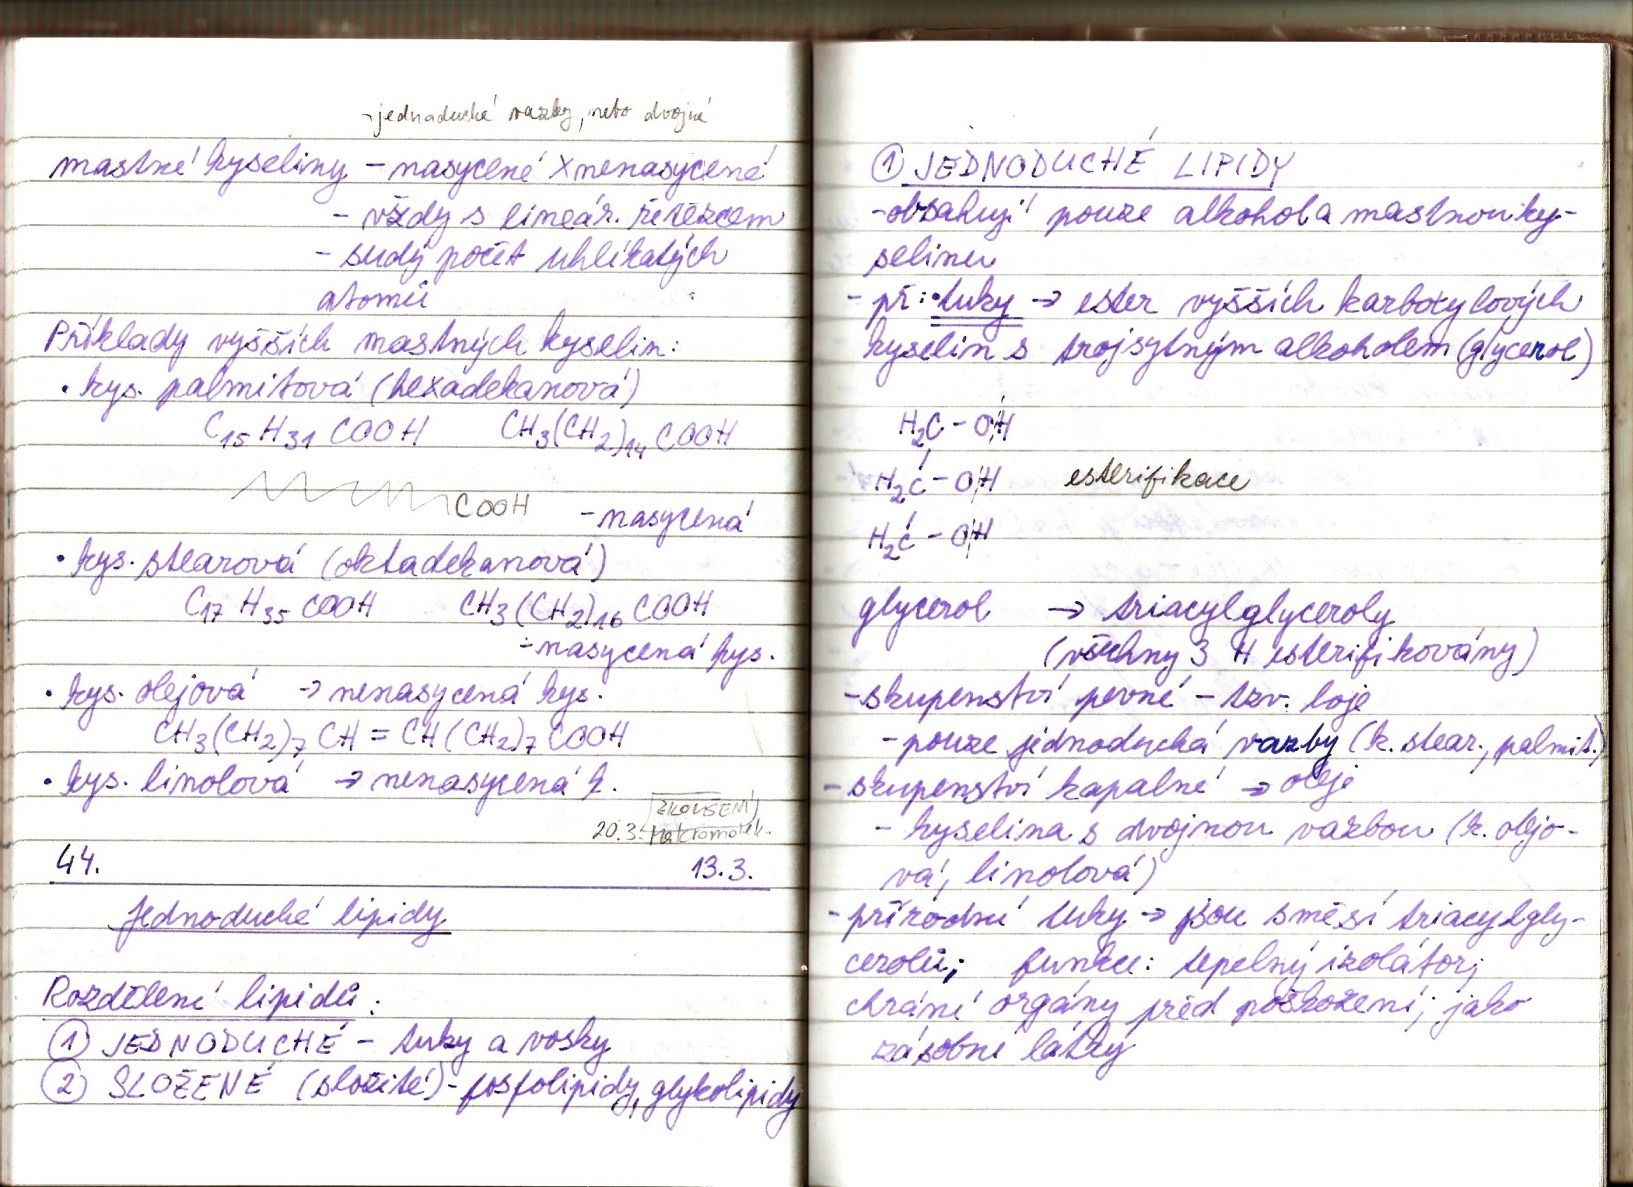 -jednoduché vazby, nebo dvojné
mastné kyseliny - nasycené x nenasycené
- vždy s lineár. řetězcem
- sudý počet uhlíkatých
atomů
Příklady vyšších mastných kyselin:
• kys. palmitová (hexadekanová)
C15 H31 COOH CH3(CH2)14 COOH
COOH - nasycená
• kys. stearová (oktadekanová)
C17 H35 COOH CH3(CH2)16 COOH
- nasycená kys.
• kys. olejová → nenasycená kys.
CH3(CH2)7 CH = CH(CH2)7 COOH
• kys. linolová → nenasycená k.
ZKOUŠENÍ
20.3.
44. 13.3.
Jednoduché lipidy
Rozdělení lipidů:
① JEDNODUCHÉ - tuky a vosky
② SLOŽENÉ (složité) - fosfolipidy, glykolipidy
① JEDNODUCHÉ LIPIDY
- obsahují pouze alkohol a mastnou ky-
selinu
- př: • tuky → ester vyšších karboxylových
kyselin s trojsytným alkoholem (glycerol)
H2C - OH
H2C - OH esterifikace
H2C - OH
glycerol → triacylglyceroly
(všechny 3 H esterifikovány)
- skupenství pevné - tzv. loje
- pouze jednoduchá vazby (k. stear., palmit.)
- skupenství kapalné → oleje
- kyselina s dvojnou vazbou (k. olejo-
vá, linolová)
- přírodní tuky → jsou směsí triacylgly-
cerolů; funkce: tepelný izolátor;
chrání orgány před poškození; jako
zásobní látky